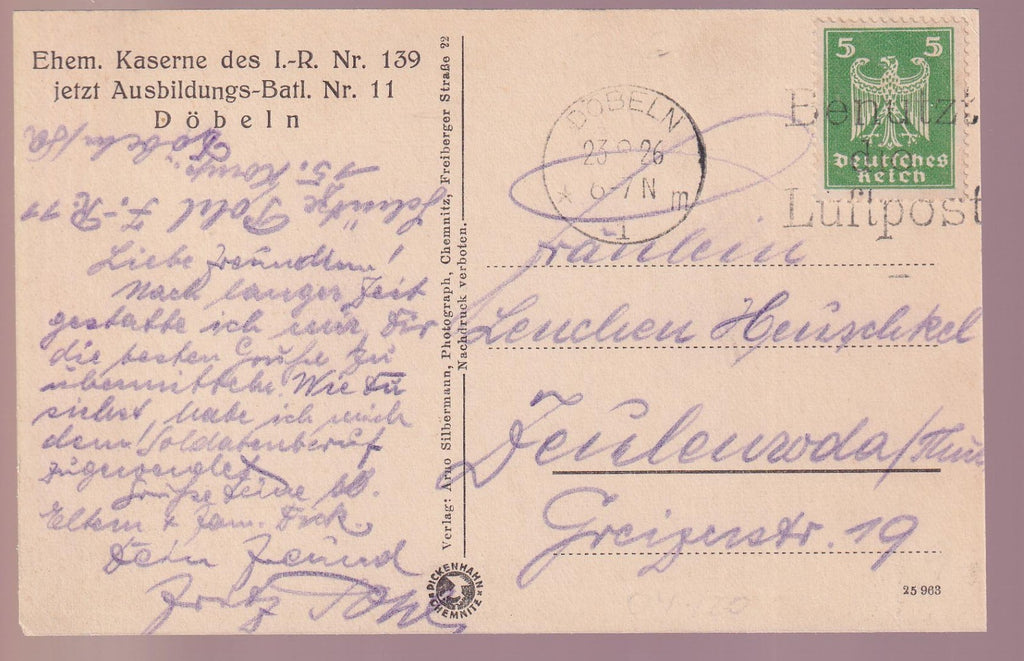 Ehem. Kaserne des I.-R. Nr. 139
jetzt Ausbildungs-Batl. Nr. 11
Döbeln
Schütze Pohl I.-R. 11
15. Komp.
Döbeln/Sa
Liebe Freundin!
Nach langer Zeit
gestatte ich mir, Dir
die besten Grüße zu
übermitteln. Wie Du
siehst habe ich mich
dem Soldatenberuf
zugeneigt.
Grüße Deine lb.
Eltern + Fam. Dick
Dein Freund
Fritz Pohl
Verlag: Arno Silbermann, Photograph, Chemnitz, Freiberger Straße 22
Nachdruck verboten.
PICKENHAHN CHEMNITZ
5 5
Deutsches
Reich
DÖBELN
23 9 26
6-7 N
* 1 m
Benutzt
die
Luftpost
Fräulein
Lenchen Heuschkel
Zeulenroda/Thür
Greizerstr. 19
25 963